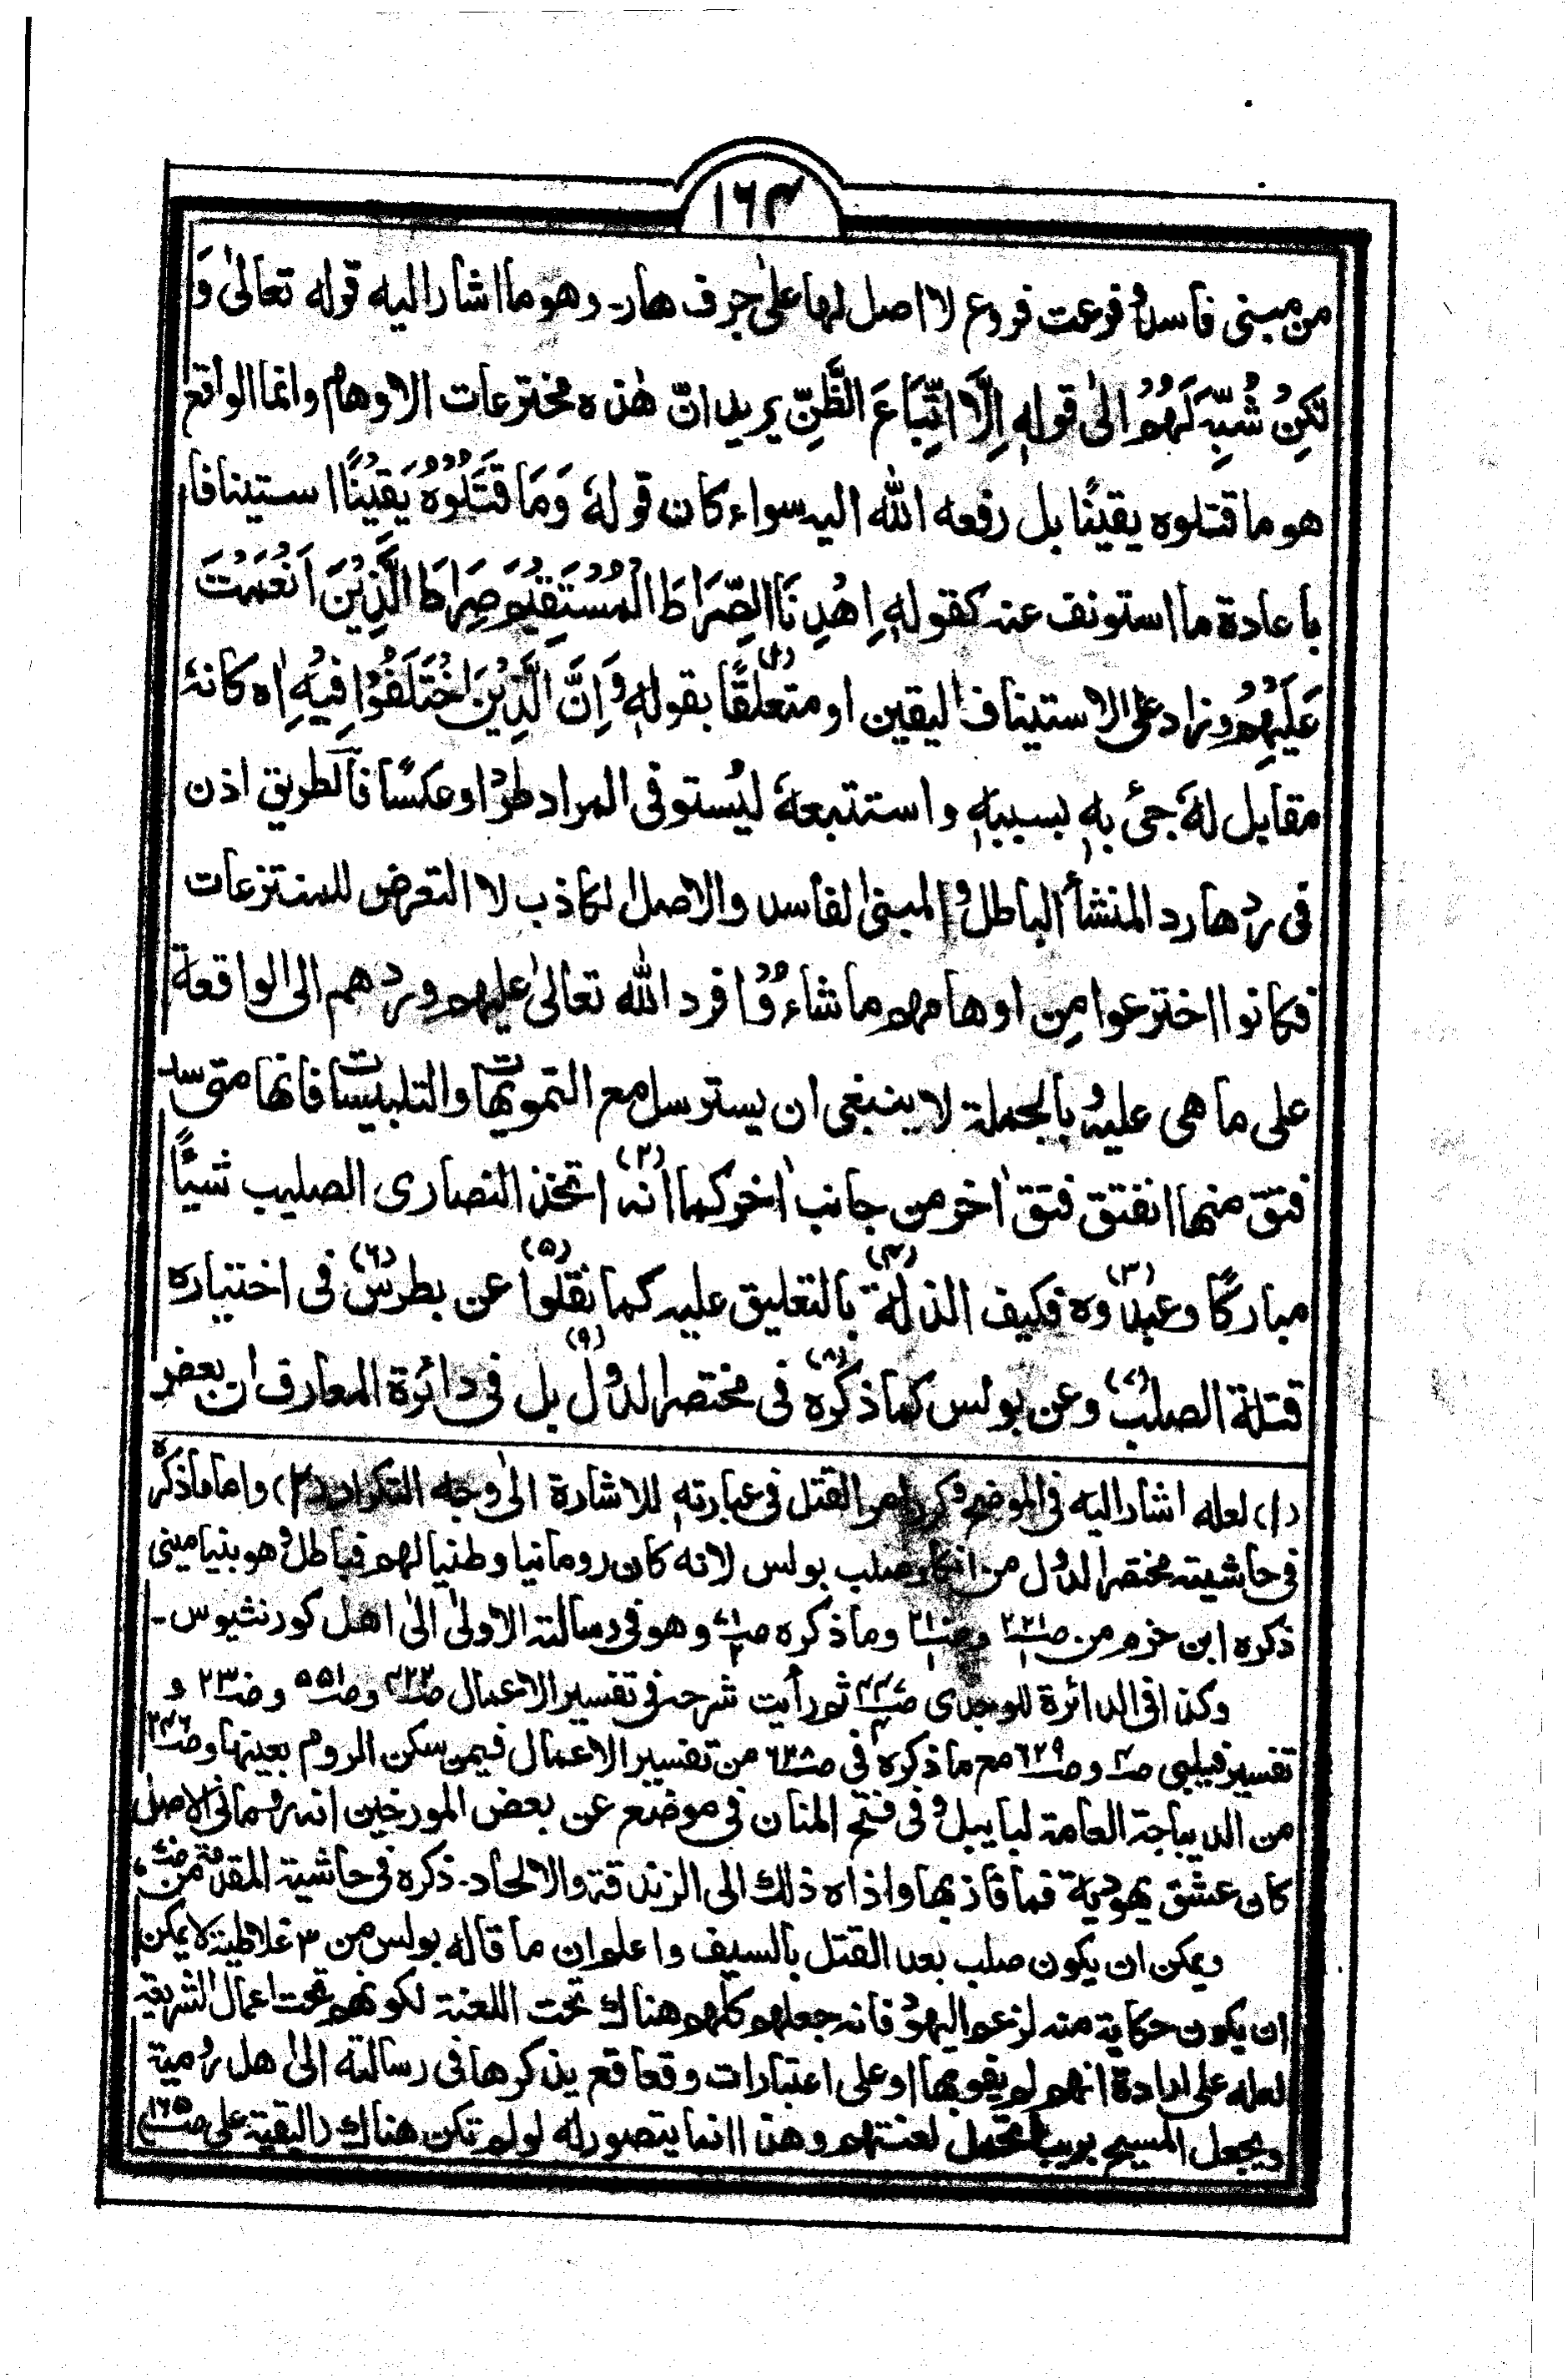 ١٦٤
من مبنى فاسد وفرعت فروع لا اصل لها على جرف هار۔ وهو ما اشار اليه قوله تعالىٰ وَ
لٰكِنْ شُبِّهَ لَهُمْ الىٰ قولهٖ اِلَّا اتِّبَاعَ الظَّنِّ يريد انّ هٰذه مخترعات الاوهام وانما الواقع
هو ما قتلوه يقينًا بل رفعه الله اليه سواء كان قولهٗ وَمَا قَتَلُوْهُ يَقِيْنًا استينافا
باعادة ما استونف عنه كقولهٖ اِهْدِنَا الصِّرَاطَ الْمُسْتَقِيْمَ صِرَاطَ الَّذِيْنَ اَنْعَمْتَ
عَلَيْهِمْ وزاد على الاستيناف اليقين او متعلقًا (١) بقولهٖ وَاِنَّ الَّذِيْنَ اخْتَلَفُوْا فِيْهِ اه كانهٗ
مقابل لهٗ جیٔ بهٖ بسببهٖ واستتبعهٗ ليُستوفى المراد طردًا وعكسًا فالطريق اذن
فى ردها رد المنشأ الباطل والمبنىٰ الفاسد والاصل الكاذب لا التعرض للمنتزعات
فكانوا اخترعوا مِن اوهامهم ما شاءُوْا فرد الله تعالىٰ عليهم وردهم الى الواقعة
على ما هى عليه وبالجملة لا ينبغى ان يسترسل مع التمويهات والتلبيسات فانها متى سد
فتق منها انفتق فتق اٰخر من جانب اٰخر كما انه (٢) اتخذ النصارى الصليب شيئًا
مباركًا وعبدوه (٣) فكيف الذلة (٤) بالتعليق عليه كما نقلوا (٥) عن بطرس (٦) فى اختياره
قتلة الصلب (٧) وعن بولس كما ذكره (٨) فى مختصر الدول (٩) بل فى دائرة المعارف ان بعض
(١) لعله اشار اليه فى الموضح وكرر امر القتل فى عبارتهٖ للاشارة الىٰ وجه التكرار (٢) واما ما ذكره
فى حاشيته مختصر الدول من انكار صلب بولس لانه كان رومانيا وطنيا لهم فباطل وهو بنيامينى
ذكره ابن حزم من ص٢٢١ و وما ذكره وهو فى رسالته الاولىٰ الىٰ اهل كورنثيوس۔
وكذا فى الدائرة للوجدى ثم رأيت شرحه فى تفسير الاعمال ص٤٢٢ وص٥٥١ وص٢٣ و
تفسير فيلبى وص٦٢٩ مع ما ذكره فى ص٦٣٨ من تفسير الاعمال فيمن سكن الروم بعينها وص٢٤٦
من الديباجة العامة لبايبل وفى فتح المنان فى موضع عن بعض المورخين انه رومانى الاصل
كان عشق يهودية فما فاز بها واذاه ذلك الى الزندقة والالحاد۔ ذكره فى حاشية المقدمة من
ويمكن ان يكون صلب بعد القتل بالسيف واعلم ان ما قاله بولس من ٣ غلاطية لا يمكن
ان يكون حكاية منه لزعم اليهود فانه جعلهم كلهم هناك تحت اللعنة لكونهم تحت اعمال الشريعة
لعله على ارادة انهم لم يفوا بها او على اعتبارات وقعاقع يذكرها فى رسالته الىٰ اهل رُمية
ويجعل المسيح بريبا تحمل لعنتهم وهذا انما يتصور له لو لم تكن هناك (البقية على ص١٦٥)